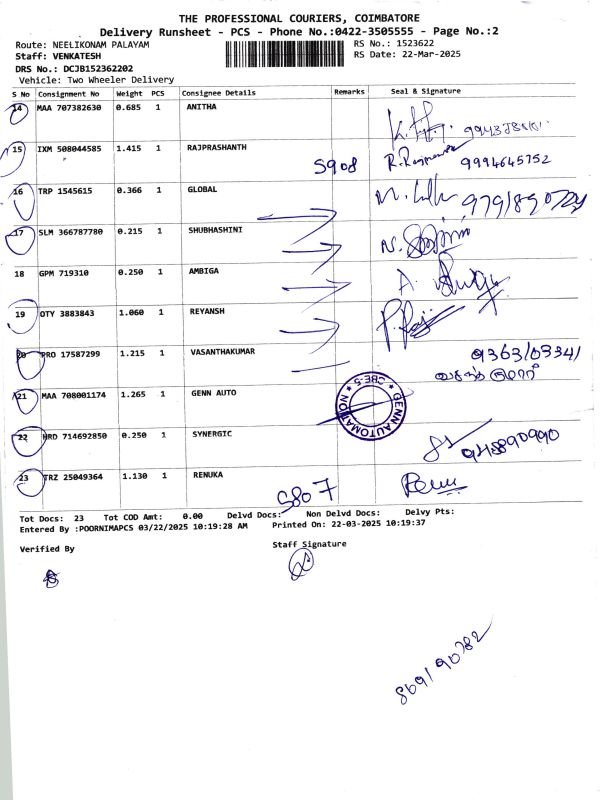 THE PROFESSIONAL COURIERS, COIMBATORE
Delivery Runsheet - PCS - Phone No.:0422-3505555 - Page No.:2
Route: NEELIKONAM PALAYAM
RS No.: 1523622
Staff: VENKATESH
RS Date: 22-Mar-2025
DRS No.: DCJB152362202
Vehicle: Two Wheeler Delivery
S No Consignment No Weight PCS Consignee Details Remarks Seal & Signature
14 MAA 707382630 0.685 1 ANITHA
15 IXM 508044585 1.415 1 RAJPRASHANTH 5908 9994645752
16 TRP 1545615 0.366 1 GLOBAL
17 SLM 366787780 0.215 1 SHUBHASHINI
18 GPM 719310 0.250 1 AMBIGA
19 OTY 3883843 1.060 1 REYANSH
20 PRO 17587299 1.215 1 VASANTHAKUMAR
21 MAA 708001174 1.265 1 GENN AUTO
22 HRD 714692850 0.250 1 SYNERGIC
23 TRZ 25049364 1.130 1 RENUKA 5807
Tot Docs: 23 Tot COD Amt: 0.00 Delvd Docs: Non Delvd Docs: Delvy Pts:
Entered By :POORNIMAPCS 03/22/2025 10:19:28 AM Printed On: 22-03-2025 10:19:37
Verified By
Staff Signature